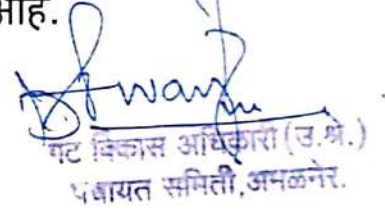 आहे.
गट विकास अधिकारी (उ.श्रे.)
पंचायत समिती, अमळनेर.